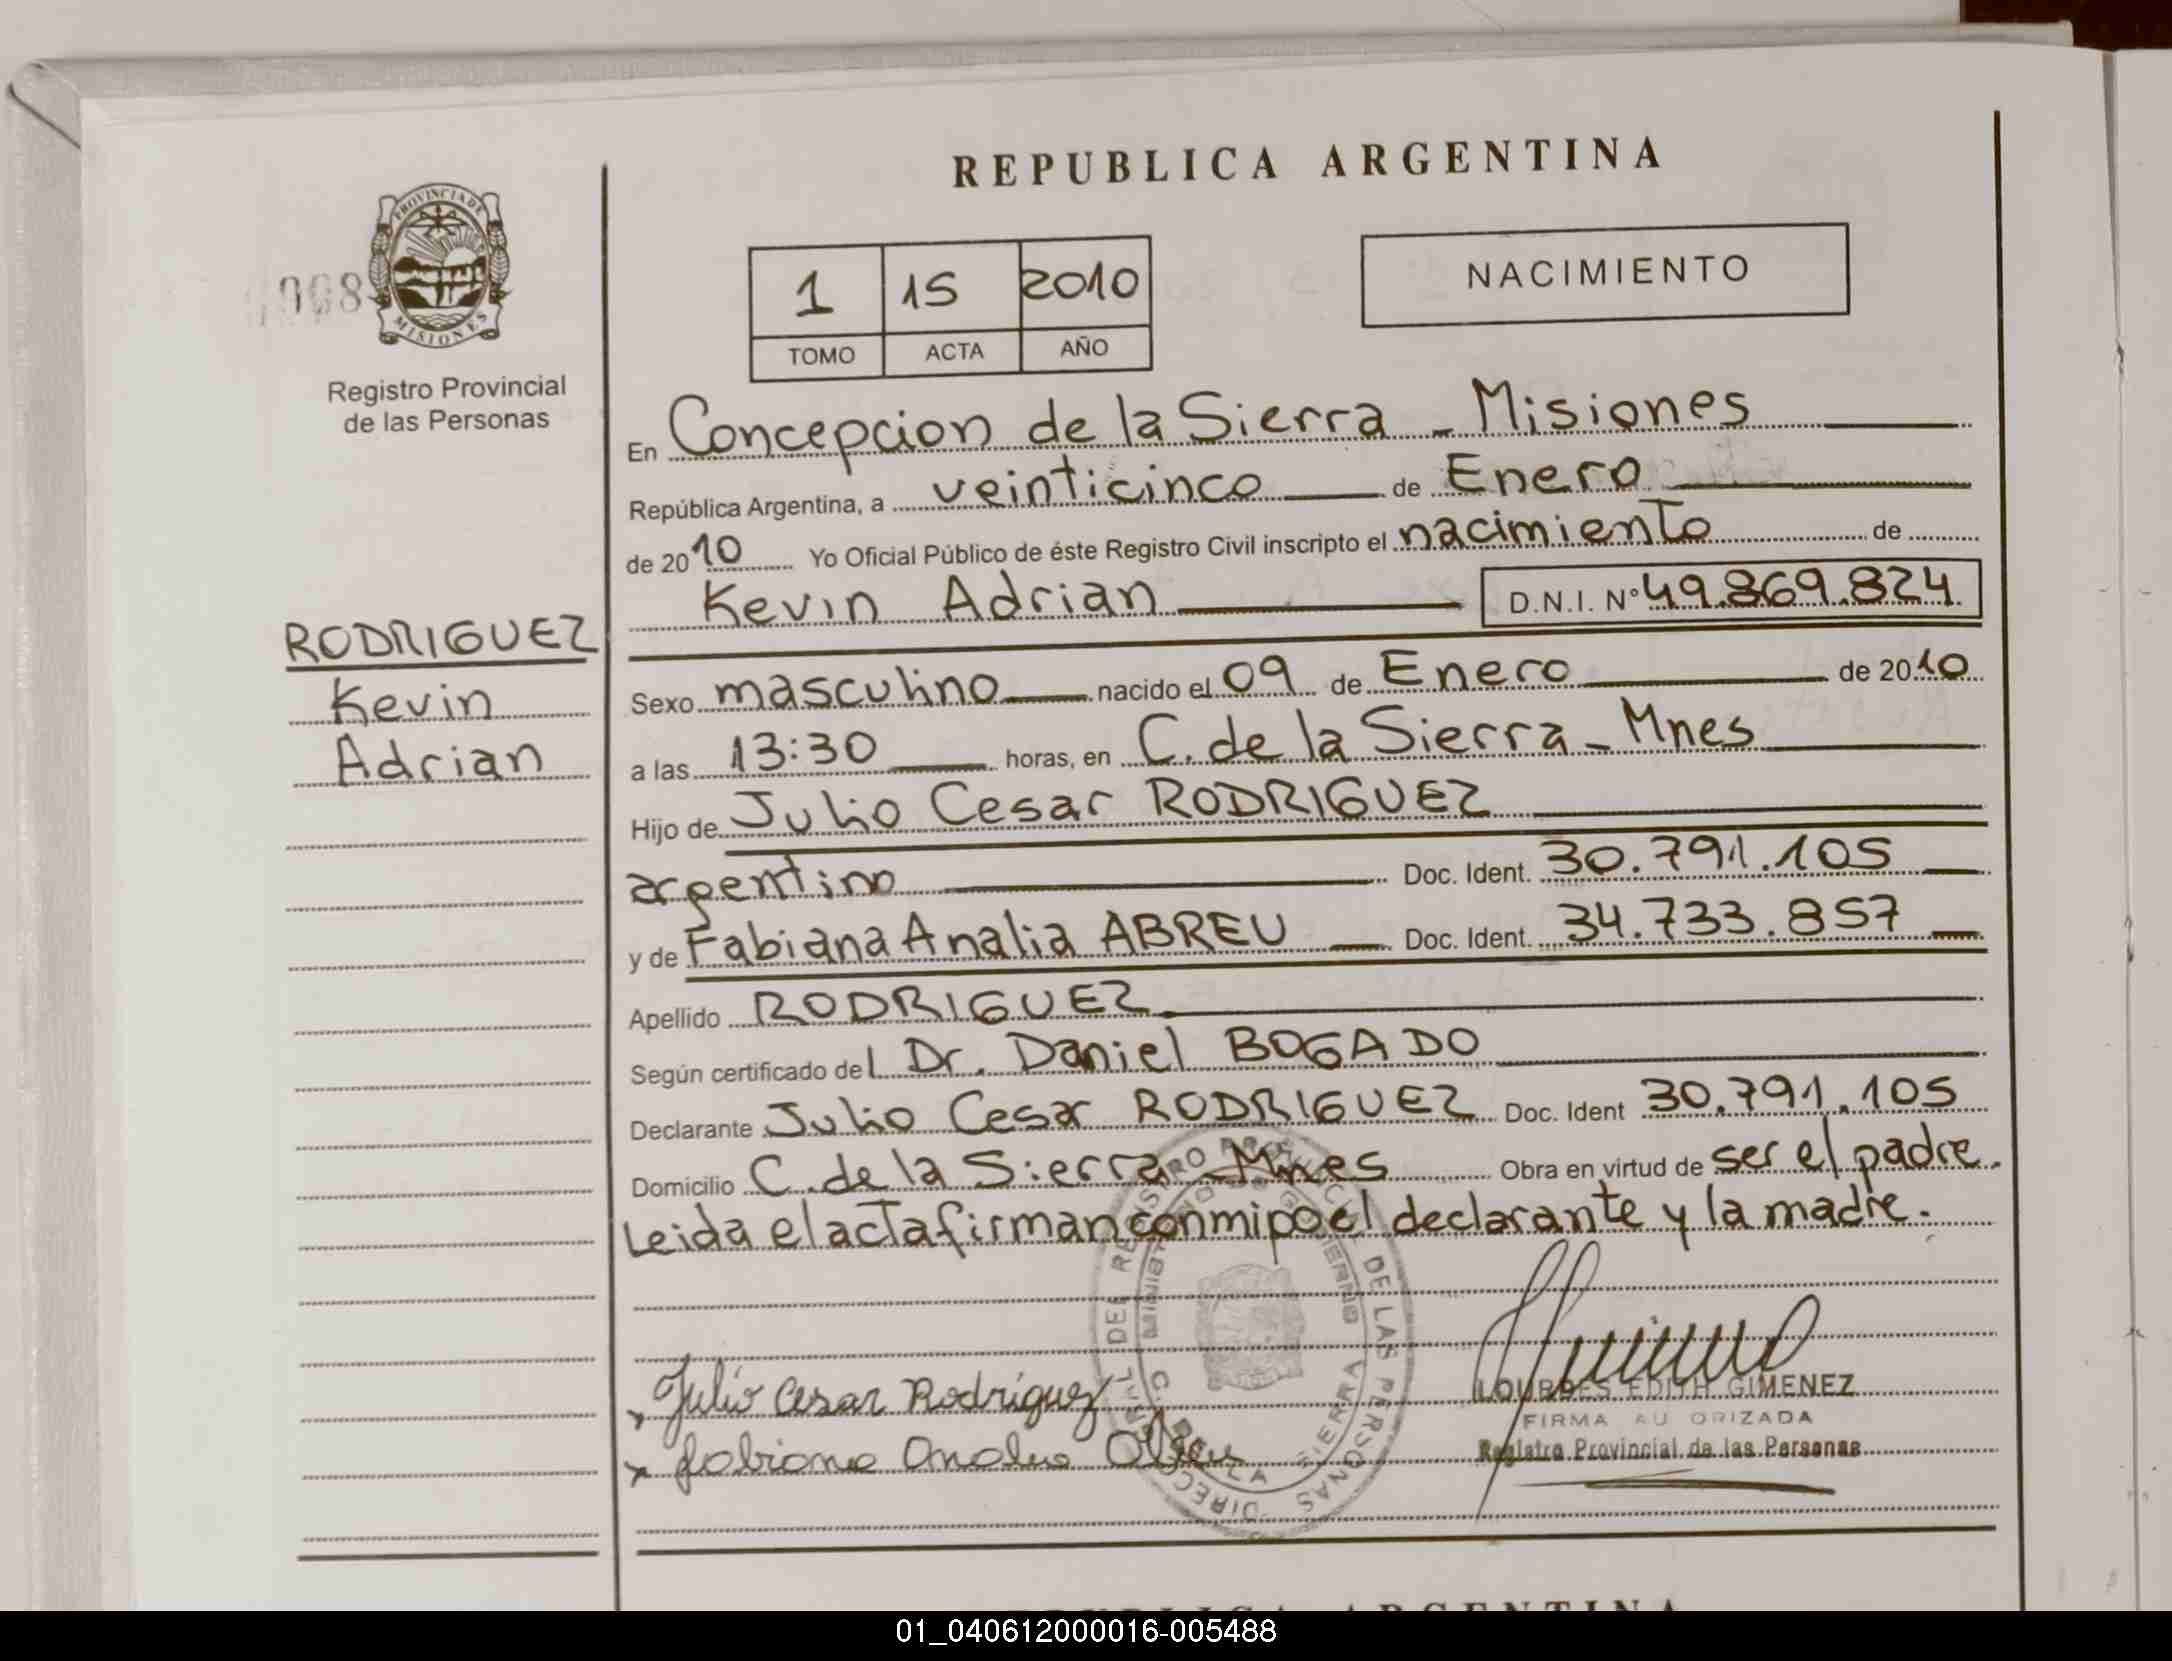 REPUBLICA ARGENTINA
PROVINCIA DE
MISIONES
Registro Provincial
de las Personas
1 15 2010
TOMO ACTA AÑO
NACIMIENTO
En Concepcion de la Sierra - Misiones
República Argentina, a veinticinco de Enero
de 2010 Yo Oficial Público de éste Registro Civil inscripto el nacimiento de
Kevin Adrian D.N.I. Nº 49.869.824
RODRIGUEZ
Kevin
Adrian
Sexo masculino nacido el 09 de Enero de 2010
a las 13:30 horas, en C. de la Sierra - Mnes
Hijo de Julio Cesar RODRIGUEZ
argentino Doc. Ident. 30.791.105
y de Fabiana Analia ABREU Doc. Ident. 34.733.857
Apellido RODRIGUEZ
Según certificado del Dr. Daniel BOGADO
Declarante Julio Cesar RODRIGUEZ Doc. Ident 30.791.105
Domicilio C. de la Sierra - Mnes Obra en virtud de ser el padre.
Leida el acta firman conmigo el declarante y la madre.
x Julio Cesar Rodriguez
x Fabiana Analia Abreu
LOURDES EDITH GIMENEZ
FIRMA AU ORIZADA
Registro Provincial de las Personas
01_040612000016-005488